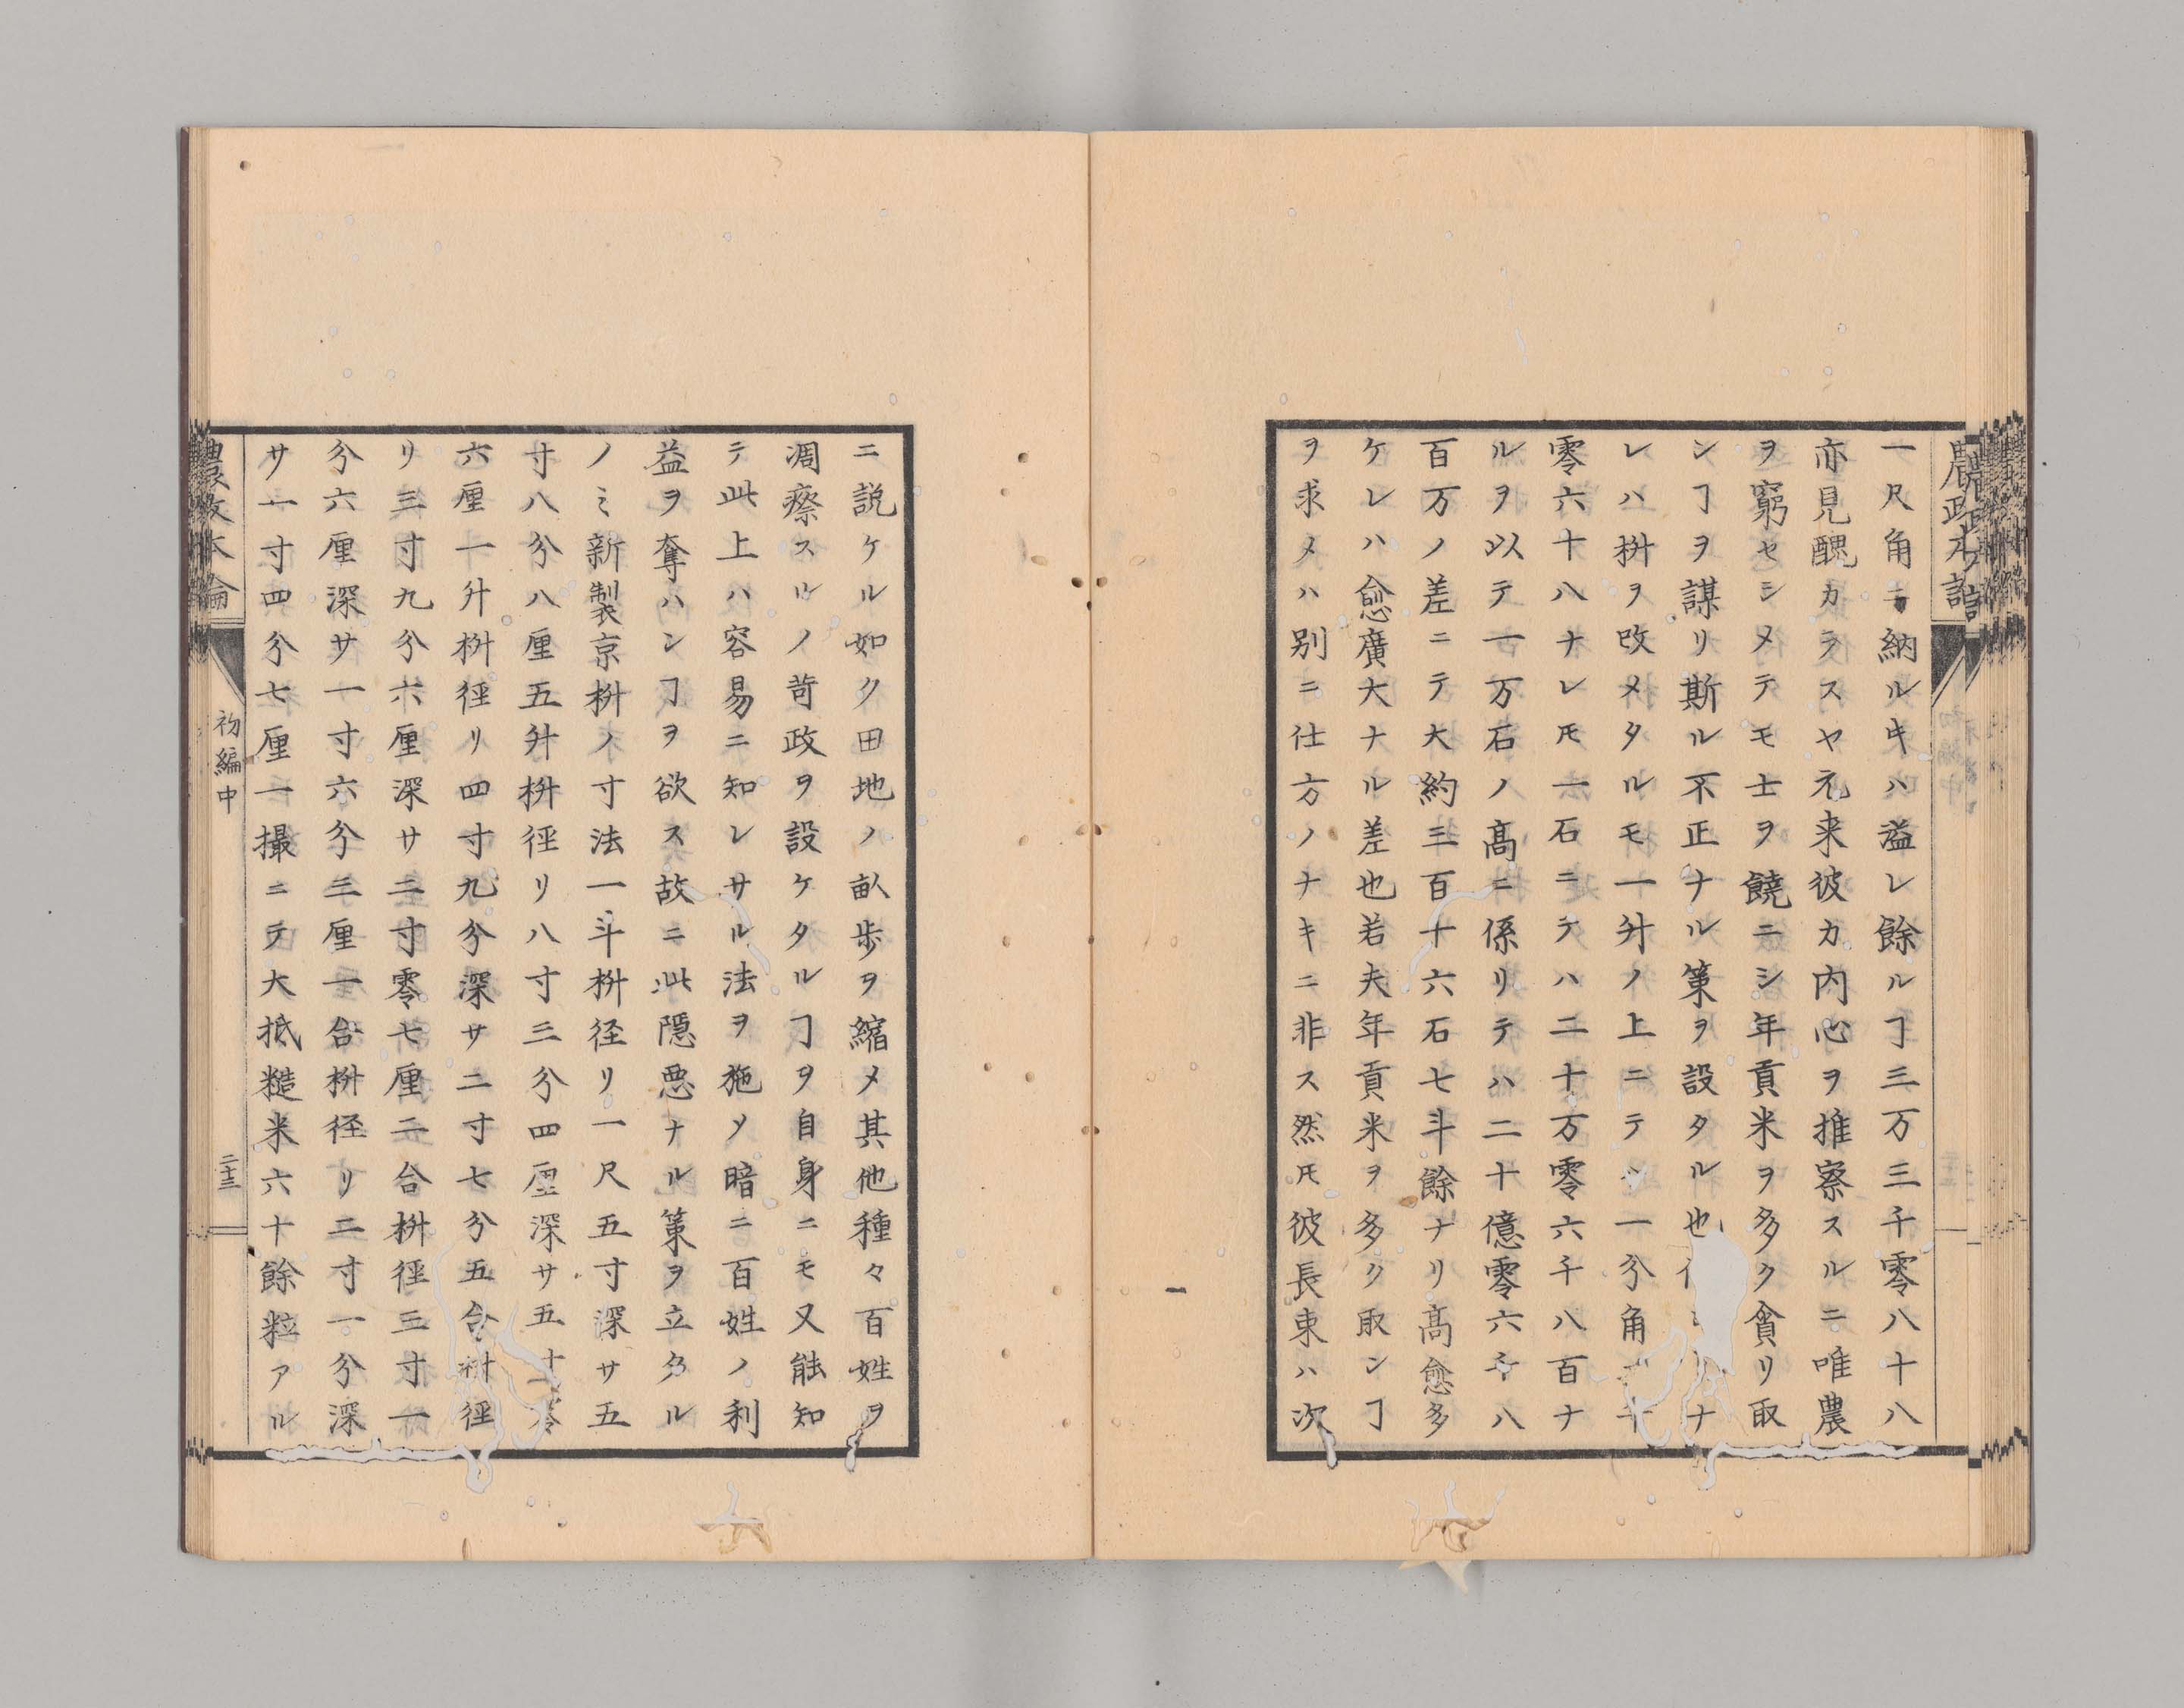 農政本論
一尺角ニ納ルキハ溢レ餘ルヿ三万三千零八十八
亦見醜カラスヤ元来彼カ内心ヲ推察スルニ唯農
ヲ窮セシメテモ士ヲ饒ニシ年貢米ヲ多ク貪リ取
ンヿヲ謀リ斯ル不正ナル策ヲ設タル也
レハ枡ヲ改メタルモ一升ノ上ニテ一分角
零六十八ナレ𪜈一石ニテハ二十万零六千八百ナ
ルヲ以テ一万石ノ髙ニ係リテハ二十億零六千八
百万ノ差ニテ大約三百十六石七斗餘ナリ髙愈多
ケレハ愈廣大ナル差也若夫年貢米ヲ多ク取ンヿ
ヲ求メハ別ニ仕方ノナキニ非ス然𪜈彼長束ハ次
ニ説ケル如ク田地ノ畝歩ヲ縮メ其他種々百姓ヲ
凋瘵スルノ苛政ヲ設ケタルヿヲ自身ニモ又能知
テ此上ハ容易ニ知レサル法ヲ施ソ暗ニ百姓ノ利
益ヲ奪ハンヿヲ欲ス故ニ此隠悪ナル策ヲ立タル
ノミ新製京枡ノ寸法一斗枡径リ一尺五寸深サ五
寸八分八厘五升枡径リ八寸三分四厘深サ五寸零
六厘一升枡徑リ四寸九分深サ二寸七分五合枡徑
リ三寸九分六厘深サ二寸零七厘二合枡徑三寸一
分六厘深サ一寸六分三厘一合枡径リ二寸一分深
サ一寸四分七厘一撮ニテ大抵糙米六十餘粒アル
農政本論
初編中
二十三